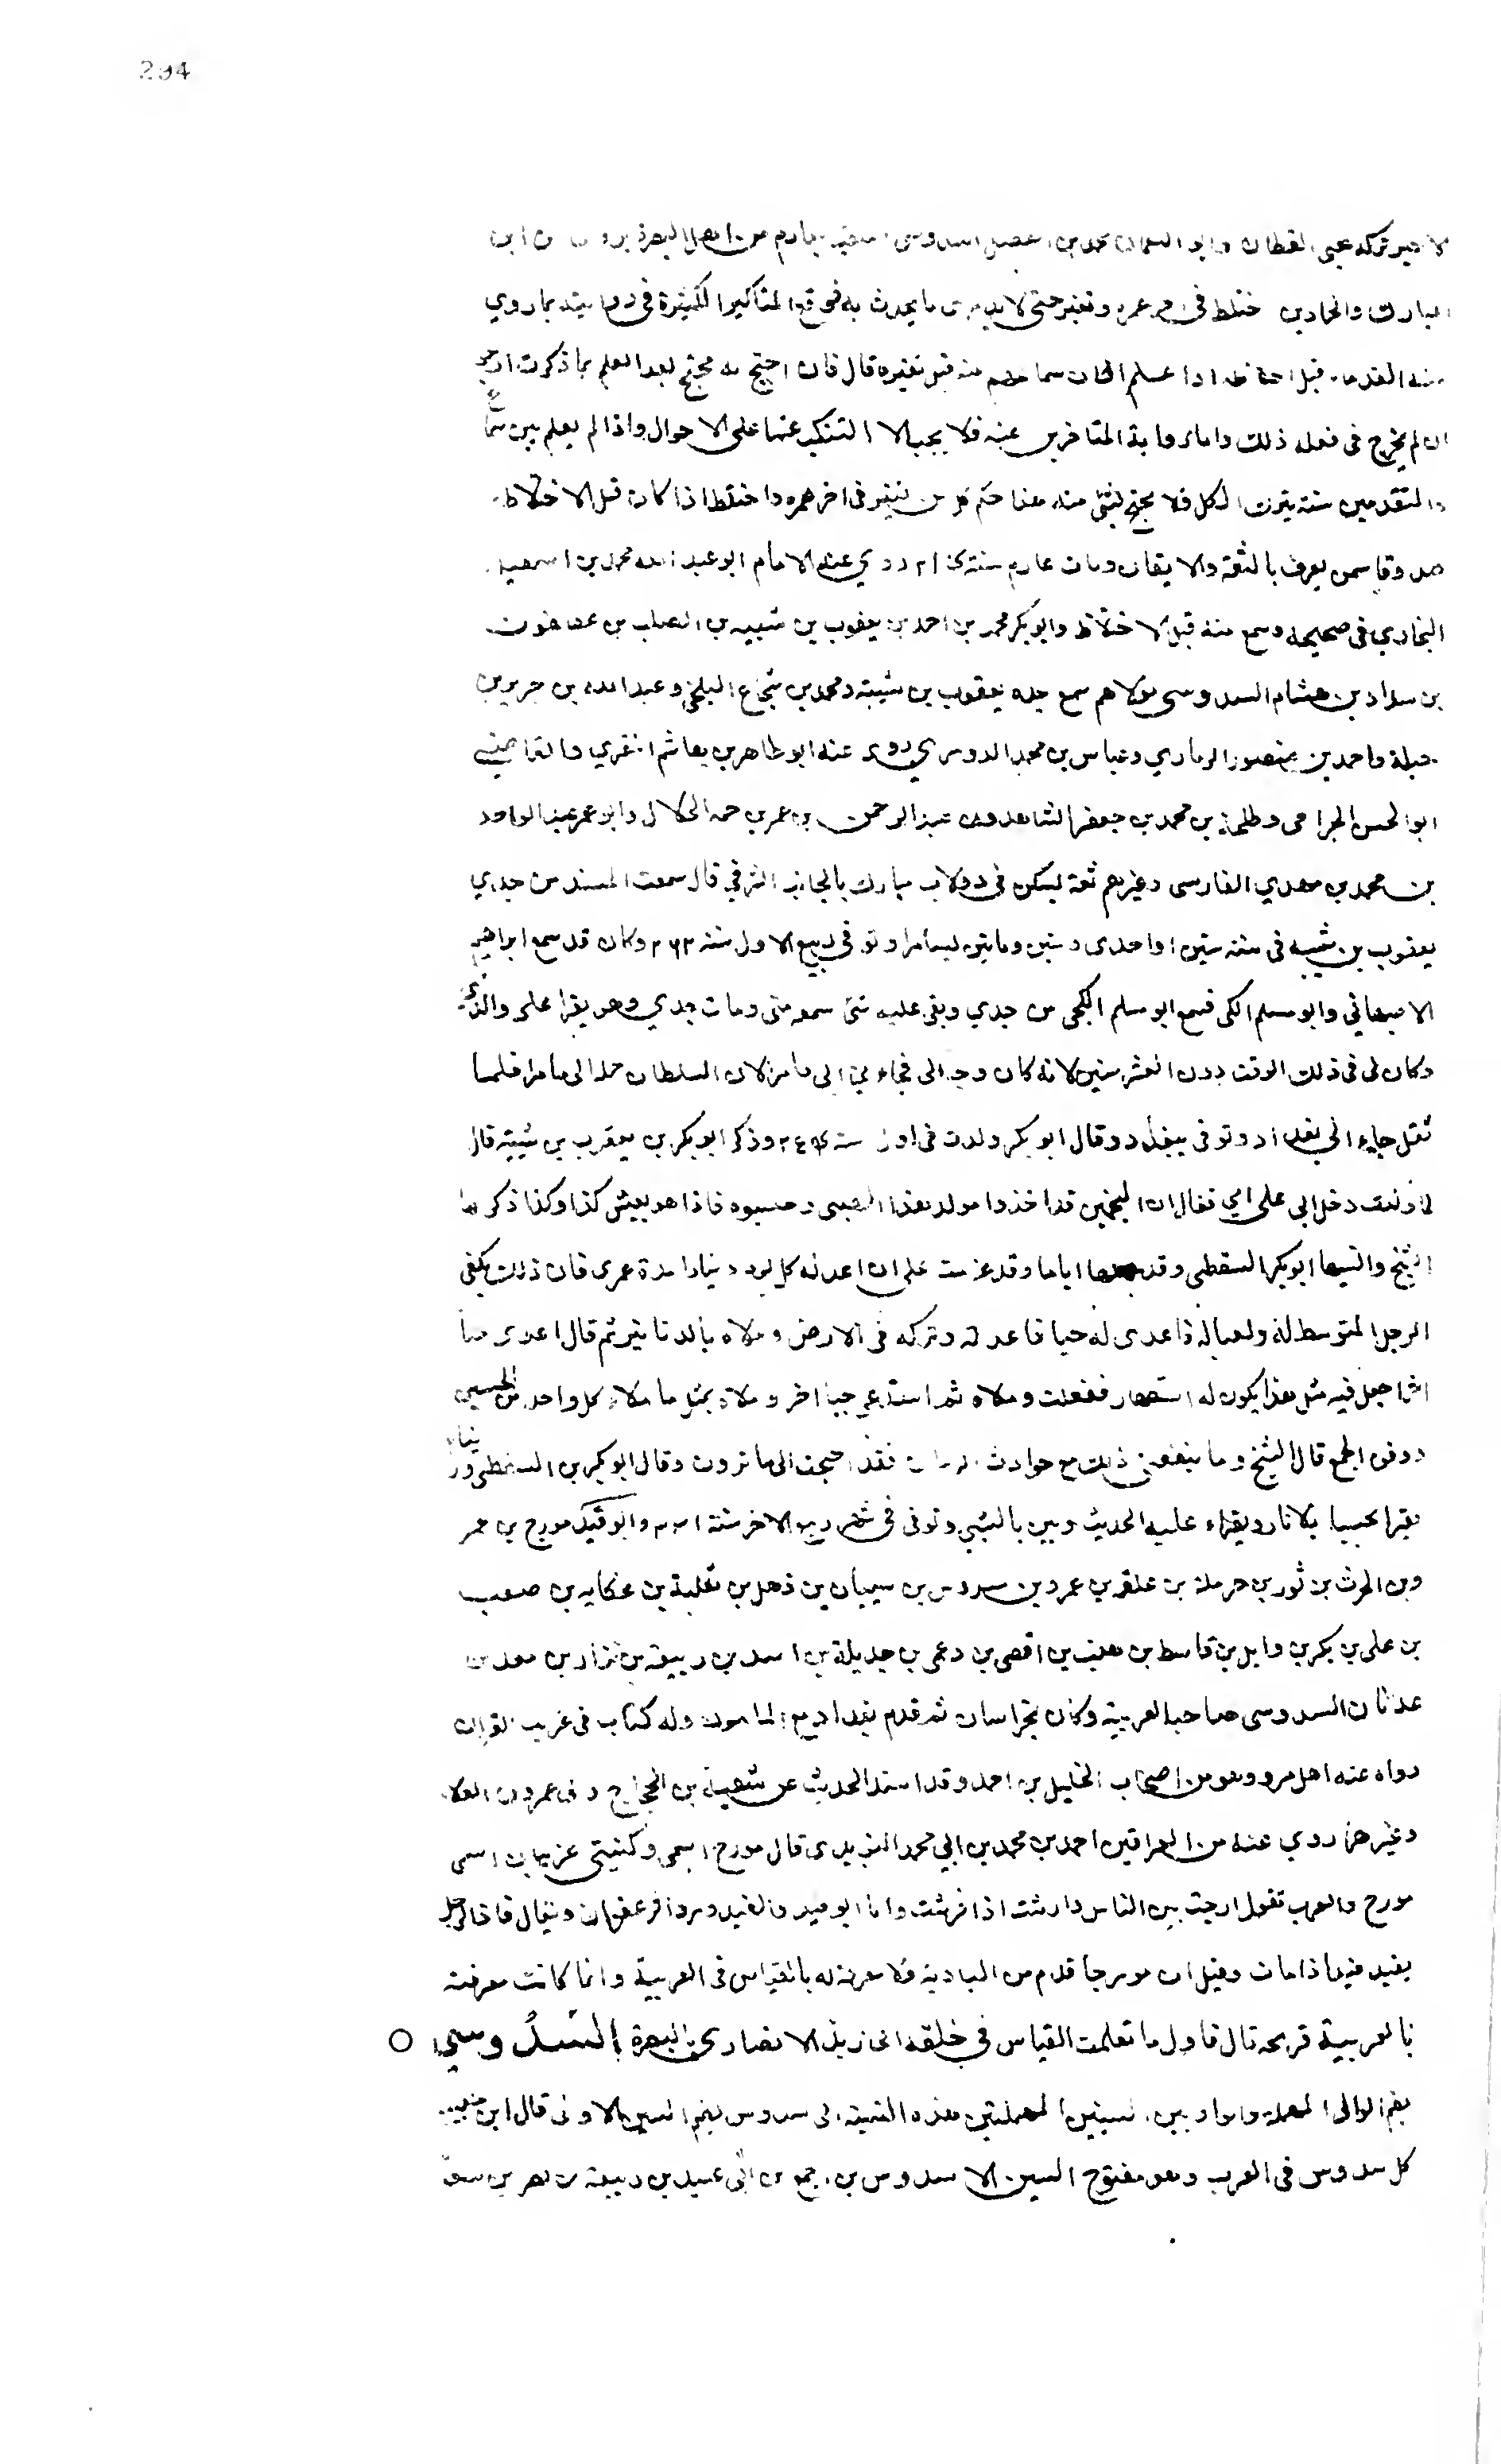 294
تركه يحيى القطان وابو النعمان محمد بن السدوسي من اهل البصرة ابن
المبارك والحمادين اختلط في اخر عمره وتغير حتى لا يدري ما يحدث به فوقع المناكير الكثيرة في روايته بما روي
عنه القدماء قبل اذا علم ان سماعهم منه قبل تغيره قال فان احتج به محتج بعد العلم بما ذكرت ارجو
ان لم يخرج في فعله ذلك واما رواية المتاخرين عنه فلا يجب الا التنكب عنها على الاحوال واذا لم يعلم بين سماع
والمتقدمين منه يترك الكل فلا يحتج بشئ منه هذا حكم كل من تغير في اخر عمره واختلط اذا كان قبل الاختلاط
صدوقا ممن يعرف بالثقة والاتقان ومات عارم سنة روي عنه الامام ابو عبد الله محمد بن اسمعيل
البخاري في صحيحه وسمع منه قبل الاختلاط وابو بكر محمد بن احمد بن يعقوب بن شيبه بن الصلت بن عصفون
بن سداد بن هشام السدوسي مولاهم سمع جده يعقوب بن شيبة ومحمد بن شجاع البلخي وعبد الله بن جرير بن
جبلة واحمد بن منصور الرمادي وعباس بن محمد الدوري روى عنه ابو طاهر بن هاشم المقري والقاضي
ابو الحسن الجراحي وطلحة بن محمد بن جعفر الشاهد وعبد الرحمن بن عمر بن حمه الخلال وابو عمر عبد الواحد
بن محمد بن مهدي الفارسي وغيرهم ثقة يسكن في دولاب مبارك بالجانب الشرقي قال سمعت المسند من جدي
يعقوب بن شيبه في سنة ستين او احدى وستين ومايتين بسامرا وتوفي ربيع الاول سنة وكان قد سمع ابراهيم
الاصبهاني وابو مسلم الكجي فسمع ابو مسلم الكجي من جدي وبقي عليه شئ سمعه مني ومات جدي وهو يقرا على والذي
وكان لي في ذلك الوقت دون العشر سنين لانه كان وجه الى فجاء بي الى سامرا لان السلطان حمله الى سامرا فلما
ثقل جاء الى بغداد وتوفي ببغداد وقال ابو بكر ولدت في اول سنة وذكر ابو بكر بن يعقوب بن شيبة قال
لما ولدت دخل ابي على امي فقال ان المنجمين قد اخذوا مولد هذا الصبي وحسبوه فاذا هو يعيش كذا وكذا ذكرها
الشيخ وانسيها ابو بكر السقطي وقد اياما وقد عزمت على ان اعد له كل يوم دينارا مدة عمري فان ذلك يكفي
الرجل المتوسط له ولعياله فاعدي له حبا فاعدته وتركه في الارض وملاه بالدنانير ثم قال اعدي حبا
اخر اجعل فيه مثل هذا يكون له استظهار ففعلت وملاه ثم استدعى حبا اخر وملاه بمثل ما ملاء كل واحد من الحبين
ودفن الجميع قال الشيخ وما نفعني ذلك مع حوادث الزمان فقد احتجت الى ما ترون وقال ابو بكر بن السقطي وراينا
فقيرا يجيبنا بلا ازار ويقراء عليه الحديث ويبر بالشي وتوفي في شهر ربيع الاخر سنة وابو فيد مورج بن عمر
وبن الحرث بن ثور بن حرملة بن علقمه بن عمرو بن سدوس بن سيبان بن ذهل بن ثعلبة بن عكابه بن صعب
بن علي بن بكر بن وايل بن قاسط بن هنب بن افصي بن دعمي بن جديلة بن اسد بن ربيعة بن نزار بن معد بن
عدنان السدوسي صاحب العربية وكان بخراسان ثم قدم بغداد مع المامون وله كتاب في غريب القران
رواه عنه اهل مرو وهو من اصحاب الخليل بن احمد وقد اسند الحديث عن شعبة بن الحجاج وابي عمرو بن العلاء
وغيرهما روي عنه من العراقين احمد بن محمد بن ابي محمد اليزيدي قال مورج اسمي وكنيتي غريبان اسمي
مورج والعرب تقول ارجت بين الناس وارشت اذا حرشت وانا ابو فيد والفيد ورد الزعفران ويقال فاد الرجل
يفيد فيدا اذا مات وقيل ان مورجا قدم من البادية ولا معرفة له بالقياس في العربية وانما كانت معرفته
بالعربية قريحه قال فاول ما تعلمت القياس في حلقه ابي زيد الانصاري بالبصرة السدوسي ○
بضم الدال المهملة والواو بين السينين المهملتين هذه النسبة الى سدوس بضم السين الاولى قال ابن حبيب
كل سدوس في العرب وهو مفتوح السين الا سدوس بن اجمع بن ابي عبيد بن ربيعة بن نصر بن سعد